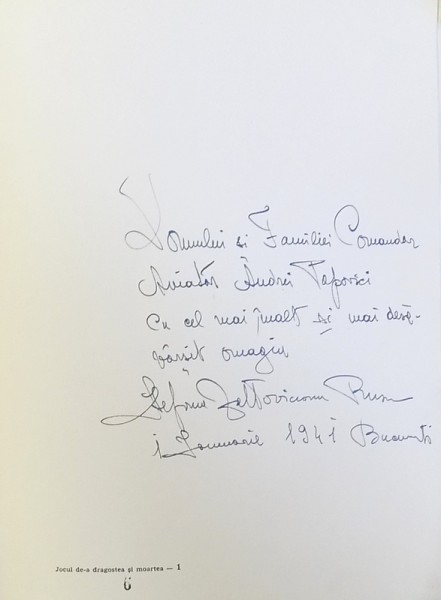 Domnului și Familiei Comandor
Aviator Andrei Popovici
Cu cel mai înalt și mai desă-
vârșit omagiu
Ștefana Velisar
1 Ianuarie 1941 București
Jocul de-a dragostea și moartea — 1